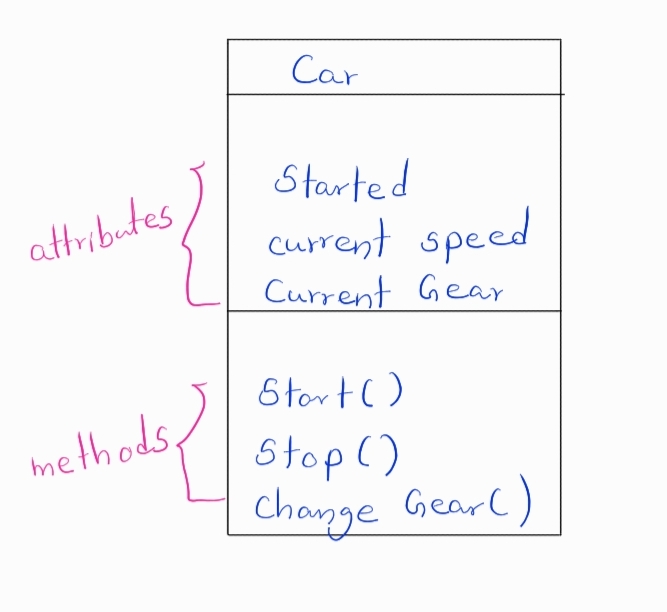 Car
attributes
Started
current speed
Current Gear
methods
Start()
Stop()
Change Gear()